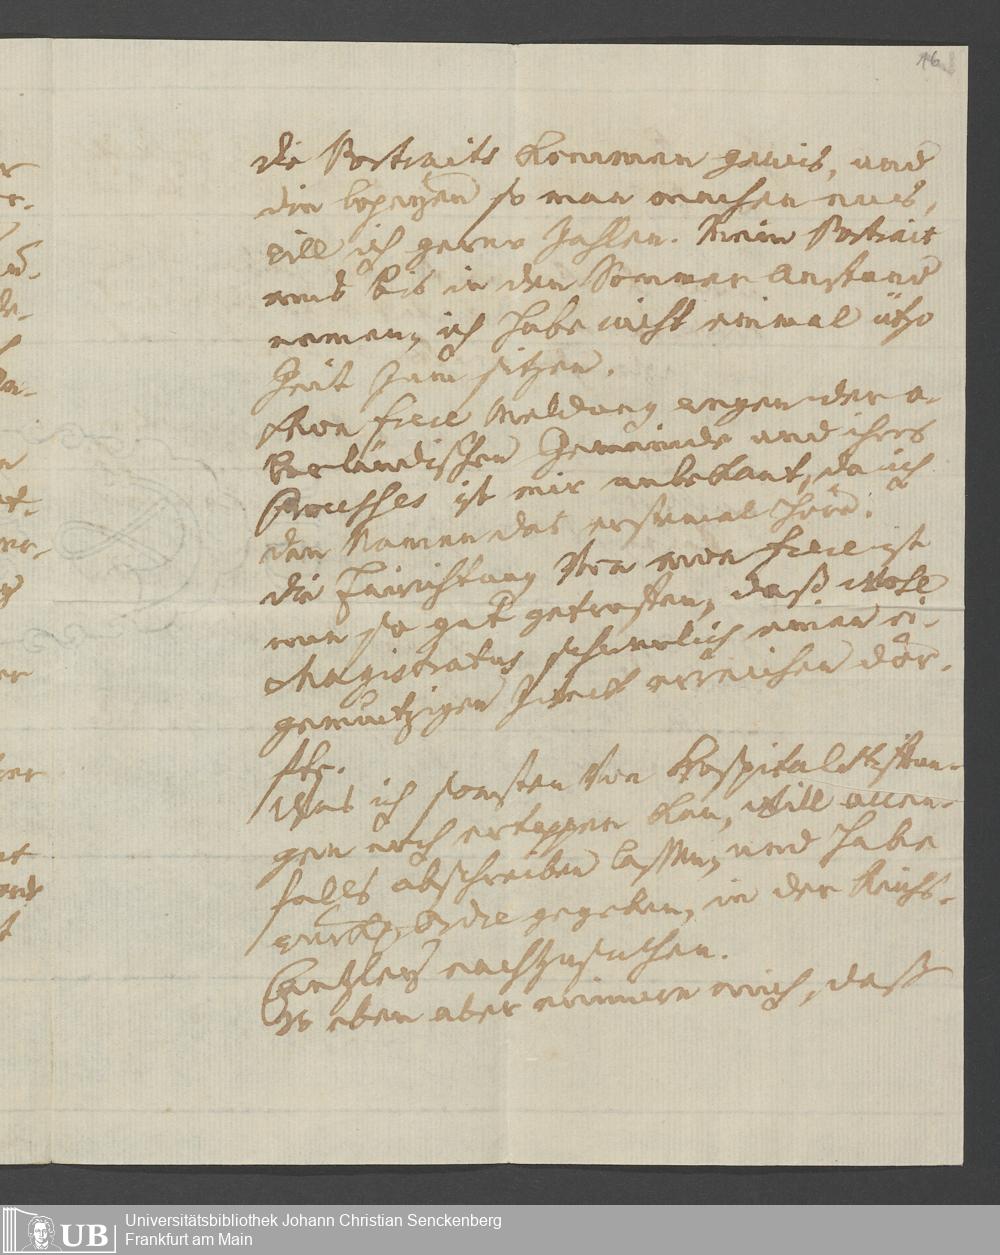 16
die Portraits kommen gewis, und
die copeyen so man machen mus,
will ich gerne zahlen. Mein Portrait
mus bis in den Sommer anstand
nemen, ich habe nicht einmal itzo
Zeit zum sitzen.
freie Meldung wegen der
ländischen Gemeinde und ihres
Processes ist mir unbekant, da ich
den Namen das erstemal höre.
die Einrichtung von ist
nun so gut getroffen, daß
Magistratus schwerlich einen ei-
gennützigen Zweck erreichen dörf-
fte.
Was ich sonsten von Hospital
gen noch ertappen kan, will allen-
falls abschreiben lassen, und habe
gegeben, in der Reichs-
Cantzley nachzusuchen.
So eben aber erinnere mich, daß
UB
Universitätsbibliothek Johann Christian Senckenberg
Frankfurt am Main